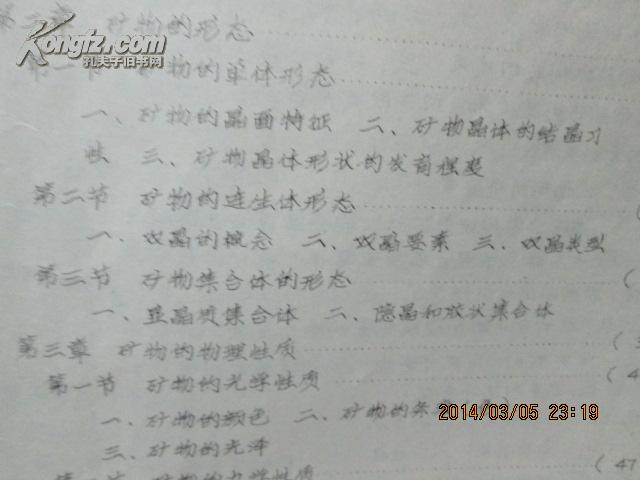 第二章 矿物的形态
Kongfz.com
孔夫子旧书网
第一节 矿物的单体形态
一、矿物的晶面特征 二、矿物晶体的结晶习
性 三、矿物晶体形状的发育程度
第二节 矿物的连生体形态
一、双晶的概念 二、双晶要素 三、双晶类型
第三节 矿物集合体的形态
一、显晶质集合体 二、隐晶和胶状集合体
第三章 矿物的物理性质
第一节 矿物的光学性质
一、矿物的颜色 二、矿物的条
2014/03/05 23:19
三、矿物的光泽
(47
第二节 矿物的力学性质